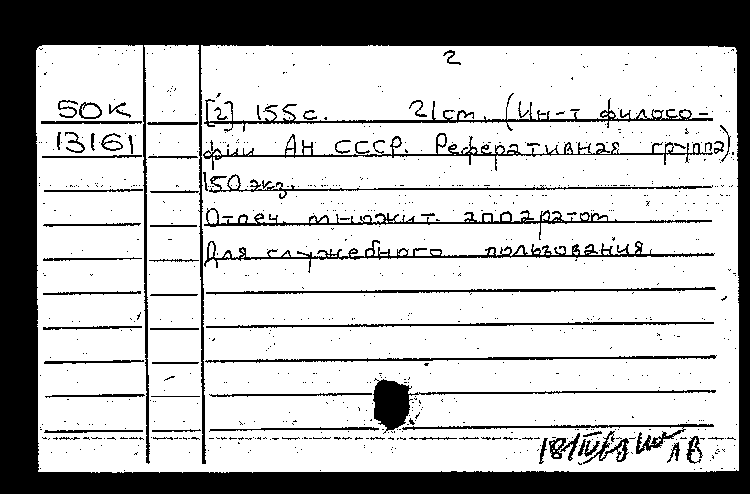 2
50К [2], 155 с. 21 cm. (Ин-т филосо-
13161 фии АН СССР. Реферативная группа).
150 экз.
Отпеч. множит. аппаратом.
Для служебного пользования.
ЛВ